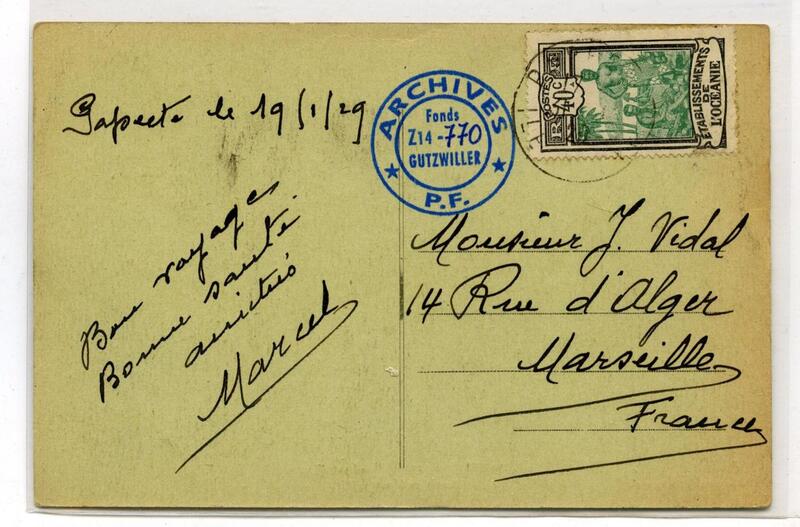 Papeete le 19/1/29
Bon voyage
Bonne santé
amitiés
Marcel
ARCHIVES
Fonds
Z14-770
GUTZWILLER
P.F.
POSTES
40c
ÉTABLISSEMENTS
DE
L'OCÉANIE
Monsieur J. Vidal
14 Rue d'Alger
Marseille
France